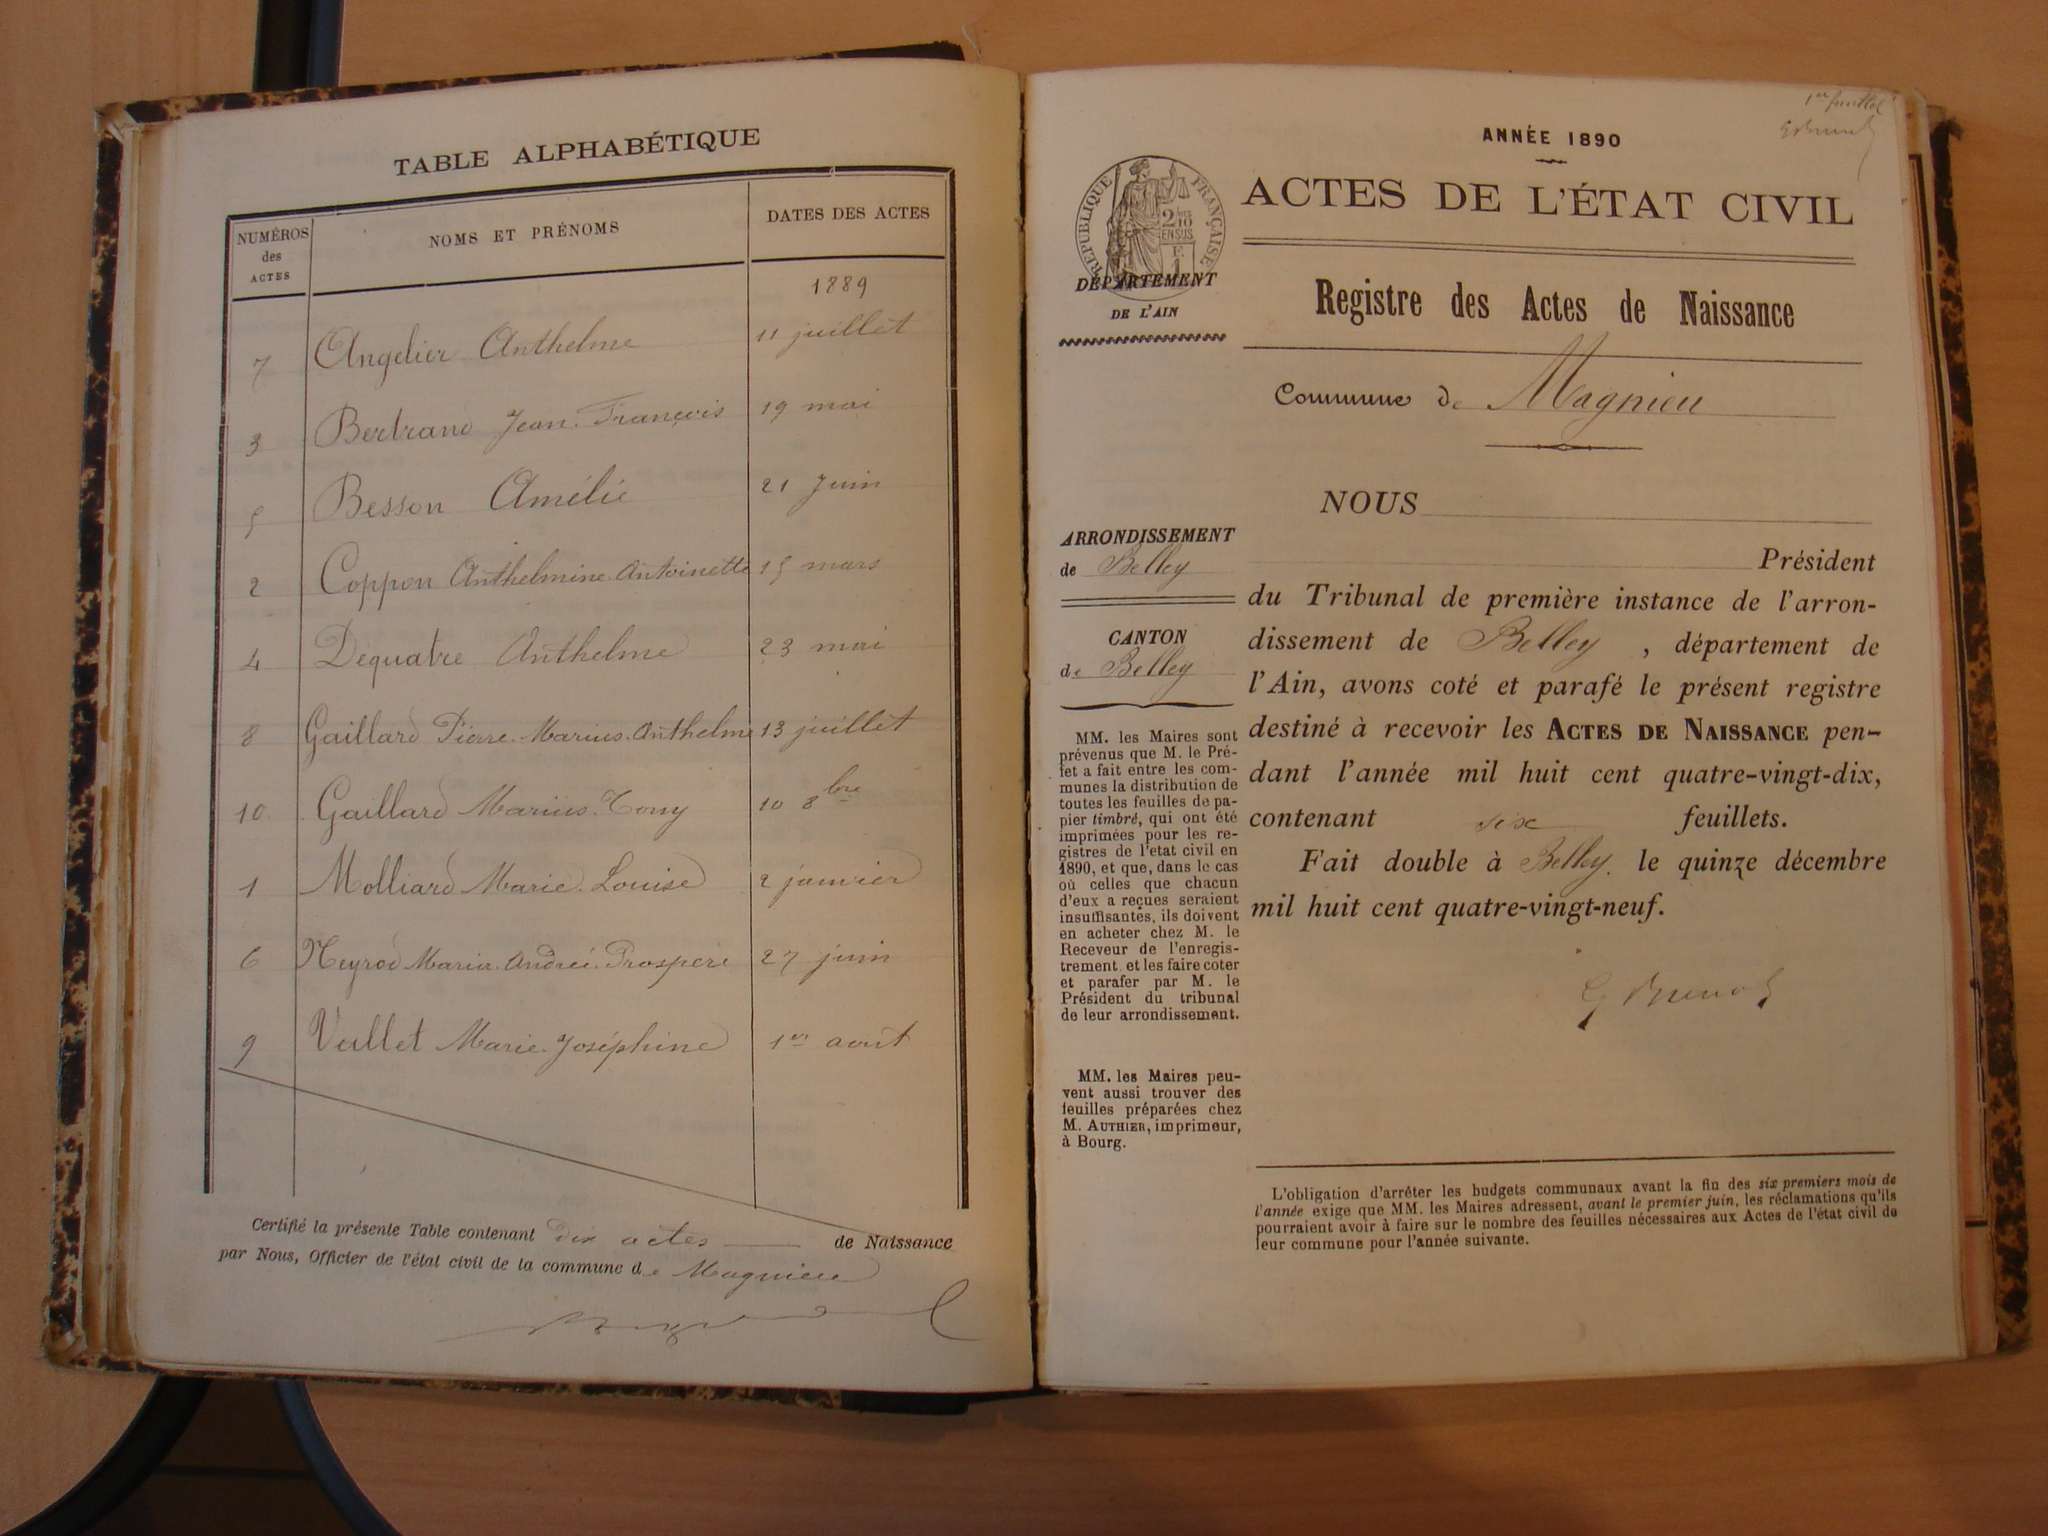 TABLE ALPHABÉTIQUE
NUMÉROS des ACTES
NOMS ET PRÉNOMS
DATES DES ACTES
1889
7 Angelier Anthelme 11 juillet
3 Bertrand Jean François 19 mai
5 Besson Amélie 21 Juin
2 Coppon Anthelmine Antoinette 15 mars
4 Dequatre Anthelme 23 mai
8 Gaillard Pierre Marius Anthelme 13 juillet
10 Gaillard Marius Tony 10 8bre
1 Molliard Marie Louise 2 janvier
6 Neyrod Marie Andrée Prospere 27 juin
9 Vallet Marie Joséphine 1er aout
Certifié la présente Table contenant dix actes de Naissance
par Nous, Officier de l'état civil de la commune de Magnieu
1er feuillet
ANNÉE 1890
RÉPUBLIQUE FRANÇAISE
2/10 EN SUS
ACTES DE L'ÉTAT CIVIL
DÉPARTEMENT
DE L'AIN
Registre des Actes de Naissance
Commune de Magnieu
NOUS
ARRONDISSEMENT
de Belley
CANTON
de Belley
MM. les Maires sont
prévenus que M. le Pré-
fet a fait entre les com-
munes la distribution de
toutes les feuilles de pa-
pier timbré, qui ont été
imprimées pour les re-
gistres de l'etat civil en
1890, et que, dans le cas
où celles que chacun
d'eux a reçues seraient
insuffisantes, ils doivent
en acheter chez M. le
Receveur de l'enregis-
trement et les faire coter
et parafer par M. le
Président du tribunal
de leur arrondissement.
MM. les Maires peu-
vent aussi trouver des
feuilles préparées chez
M. AUTHIER, imprimeur,
à Bourg.
Président
du Tribunal de première instance de l'arron-
dissement de Belley, département de
l'Ain, avons coté et parafé le présent registre
destiné à recevoir les ACTES DE NAISSANCE pen-
dant l'année mil huit cent quatre-vingt-dix,
contenant six feuillets.
Fait double à Belley. le quinze décembre
mil huit cent quatre-vingt-neuf.
L'obligation d'arrêter les budgets communaux avant la fin des six premiers mois de
l'année exige que MM. les Maires adressent, avant le premier juin, les réclamations qu'ils
pourraient avoir à faire sur le nombre des feuilles nécessaires aux Actes de l'état civil de
leur commune pour l'année suivante.